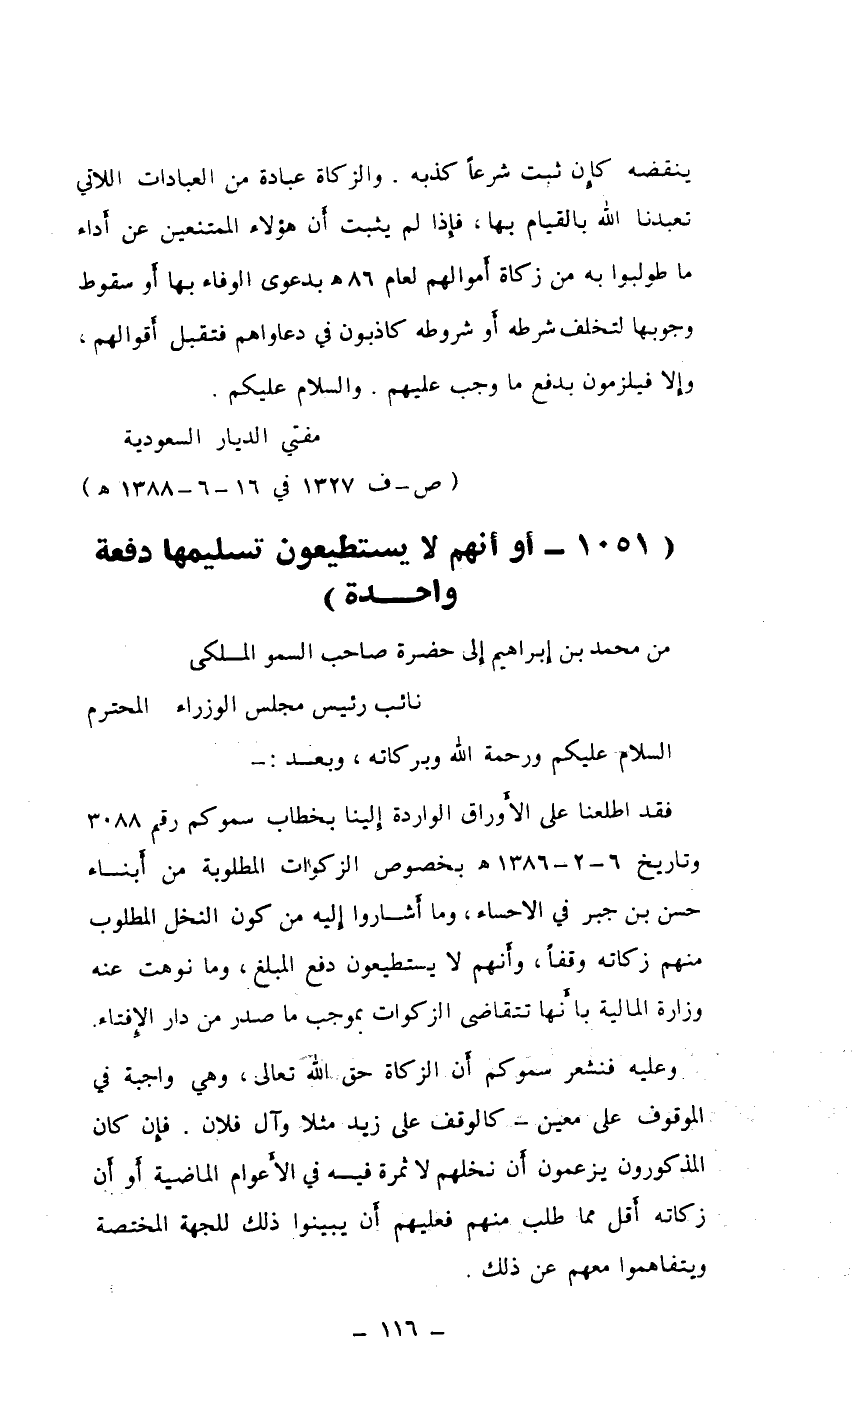 ينقضه كإن ثبت شرعاً كذبه . والزكاة عبادة من العبادات اللاتي
تعبدنا الله بالقيام بها ، فإذا لم يثبت أن هؤلاء الممتنعين عن أداء
ما طولبوا به من زكاة أموالهم لعام ٨٦ ه بدعوى الوفاء بها أو سقوط
وجوبها لتخلف شرطه أو شروطه كاذبون في دعاواهم فتقبل أقوالهم ،
وإلا فيلزمون بدفع ما وجب عليهم . والسلام عليكم .
مفتي الديار السعودية
( ص-ف ١٣٢٧ في ١٦-٦-١٣٨٨ ه )
( ١٠٥١ - أو أنهم لا يستطيعون تسليمها دفعة
واحـــدة )
من محمد بن إبراهيم إلى حضرة صاحب السمو المـلكى
نائب رئيس مجلس الوزراء المحترم
السلام عليكم ورحمة الله وبركاته ، وبعـد :-
فقد اطلعنا على الأوراق الواردة إلينا بخطاب سموكم رقم ٣٠٨٨
وتاريخ ٦-٢-١٣٨٦ ه بخصوص الزكوات المطلوبة من أبنـاء
حسن بن جبر في الاحساء ، وما أشـاروا إليه من كون النخل المطلوب
منهم زكاته وقفاً ، وأنهم لا يستطيعون دفع المبلغ ، وما نوهت عنه
وزارة المالية بأنها تتقاضى الزكوات بموجب ما صدر من دار الإفتاء.
وعليه فنشعر سموكم أن الزكاة حق الله تعالى ، وهي واجبة في
الموقوف على معين - كالوقف على زيد مثلا وآل فلان . فإن كان
المذكورون يزعمون أن نخلهم لا ثمرة فيـه في الأعوام الماضية أو أن
زكاته أقل مما طلب منهم فعليهم أن يبينوا ذلك للجهة المختصة
ويتفاهموا معهم عن ذلك .
- ١١٦ -